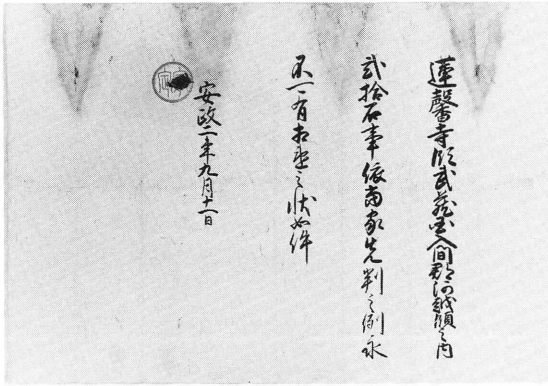 蓮馨寺領武蔵国入間郡河越領之内
弐拾石事依当家先判之例永
不可有相違之状如件
安政二年九月十一日